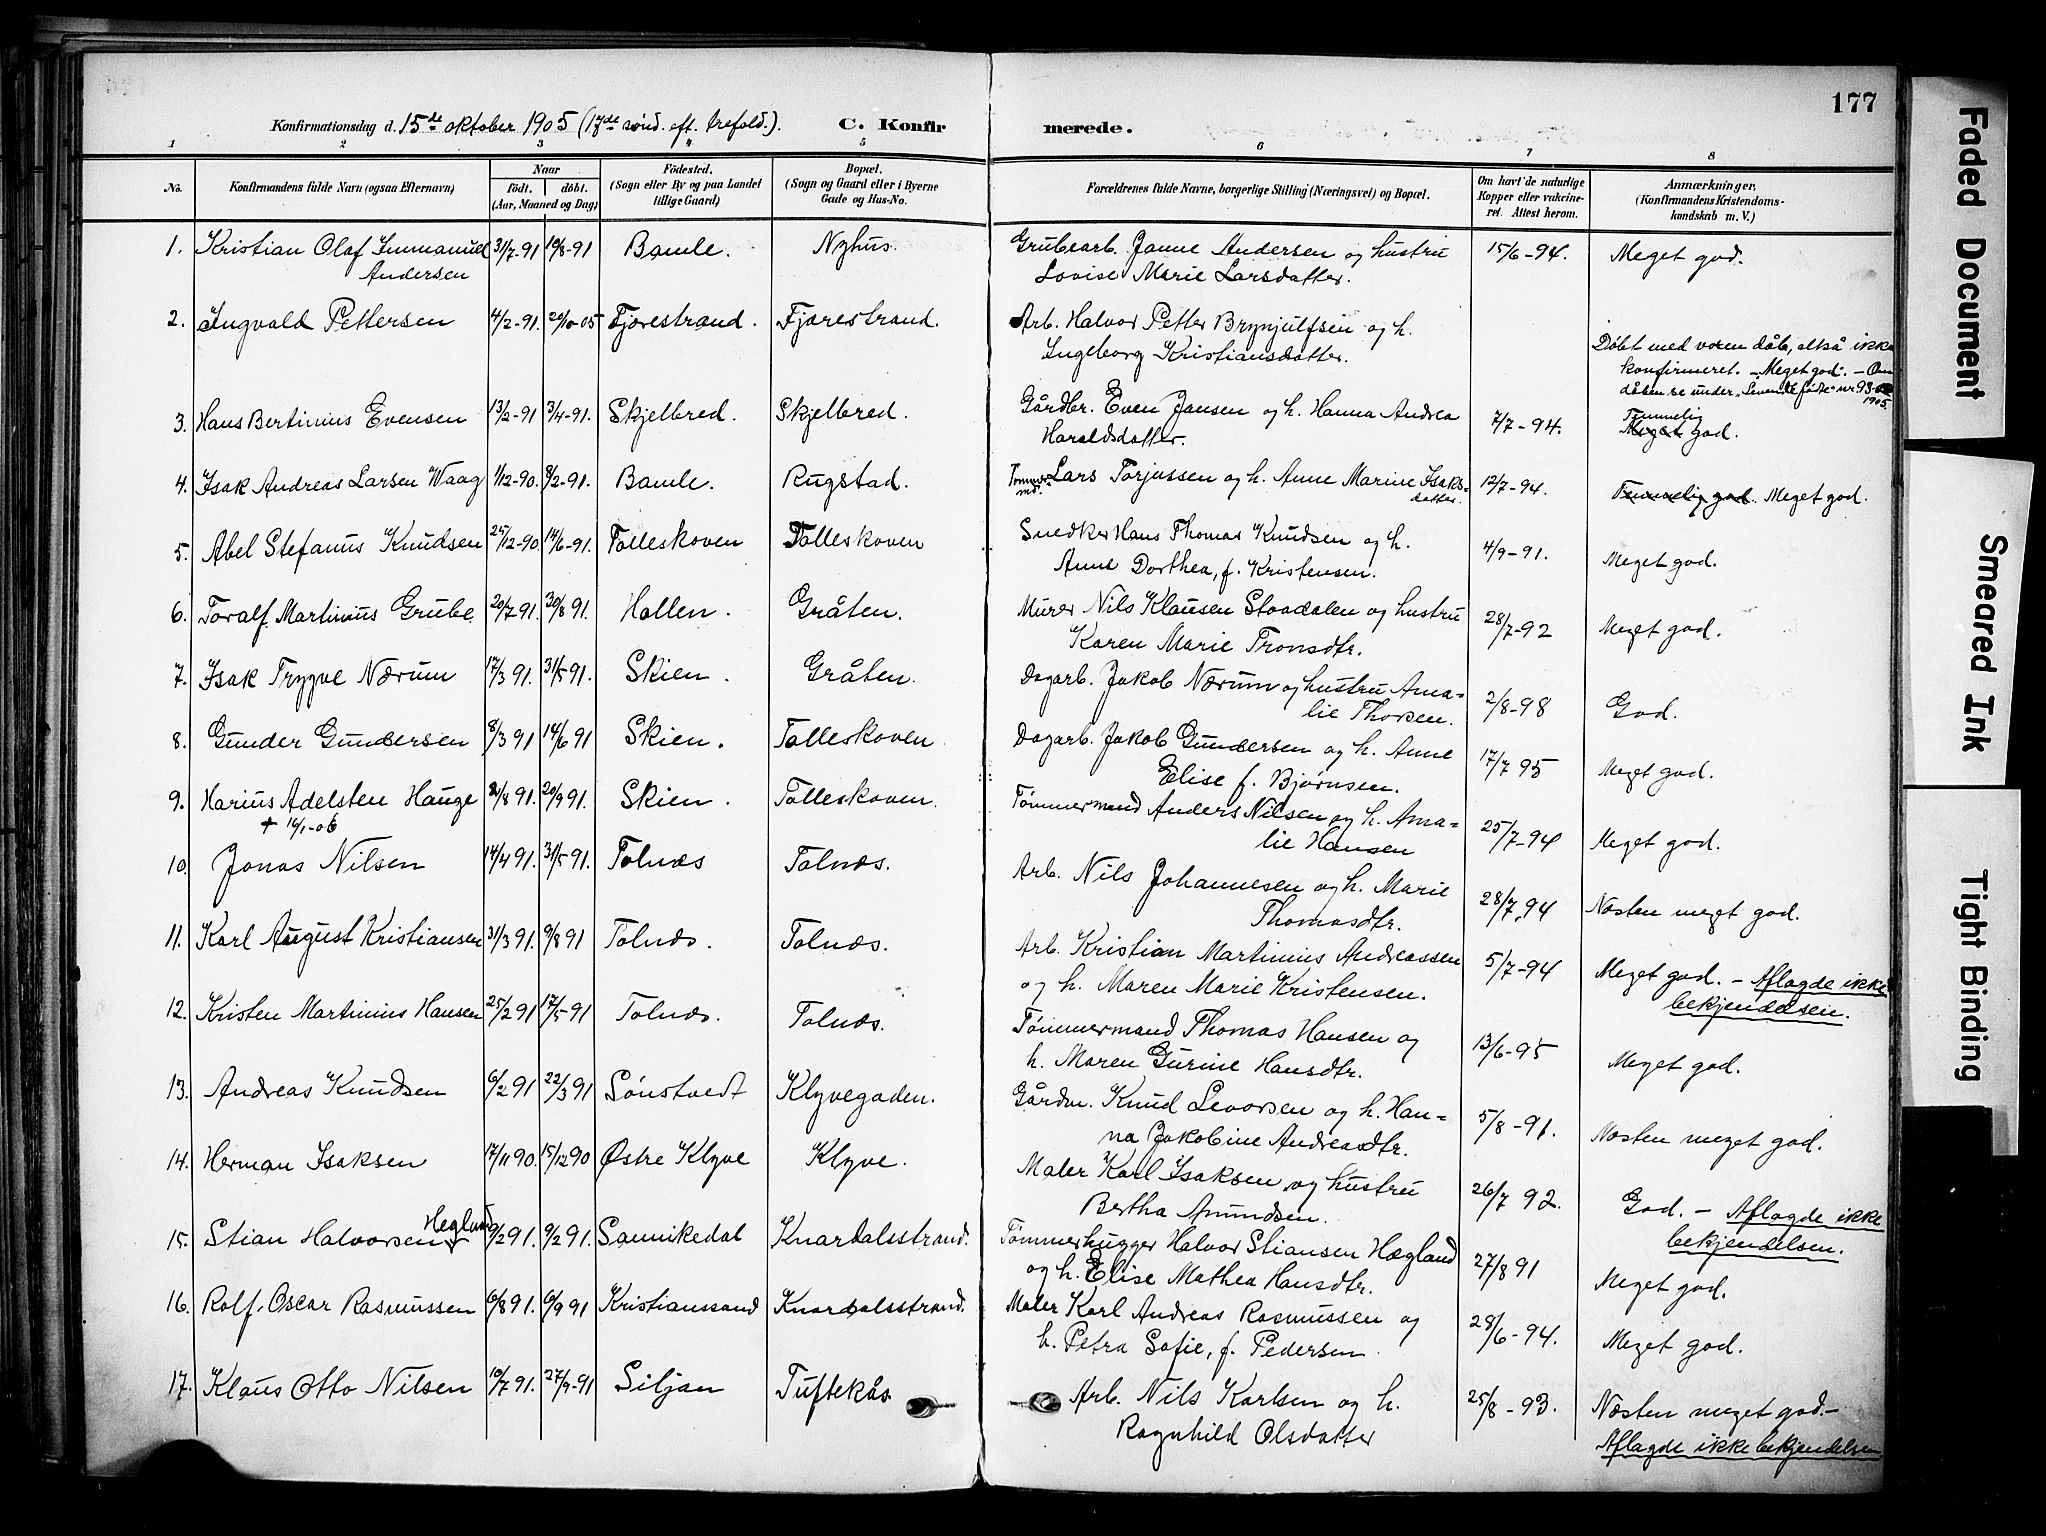 177
Konfirmationsdag d. 15de oktober 1905 (17de sønd. eft. trefold.). C. Konfir merede.
1 2 3 4 5 6 7 8
No. Konfirmandens fulde Navn (ogsaa Efternavn) Naar født. døbt. (Aar, Maaned og Dag) Fødested. (Sogn eller By og paa Landet tillige Gaard) Bopæl. (Sogn og Gaard eller i Byerne Gade og Hus-No. Forældrenes fulde Navne, borgerlige Stilling (Næringsvei) og Bopæl. Om havt de naturlige Kopper eller vakcineret. Attest herom. Anmærkninger. (Konfirmandens Kristendomskundskab m. V.)
1. Kristian Olaf Immanuel 31/7-91 16/8-91 Bamle. Nyhus. Grubearb. Janne Andersen og hustru 15/6-94. Meget god.
Andersen Lovise Marie Larsdatter.
2. Ingvald Pettersen 4/2-91. 29/10-05 Fjærestrand. Fjærestrand. Arb. Halvor Petter Brynjulfsen og h.
Ingeborg Kristiansdatter. Døbt med voxen dåb, altså ikke
konfirmeret. - Meget god. - Om
dåben se under "Levende fødte" nr 93
1905.
3. Hans Bertinius Evensen 13/2-91 3/4-91. Skjelbred. Skjelbred. Gårdbr. Even Jansen og h. Hanna Andrea 7/7-94. Temmelig
Haraldsdatter. Meget god.
4. Isak Andreas Larsen Waag 1/12-90. 8/2-91. Bamle. Rugstad. Tømmermd. Lars Torjussen og h. Anne Marine Isaks- 12/7-94. Temmelig god. Meget god.
datter.
5. Abel Stefanus Knudsen 25/12-90 14/6-91. Tolleskoven Tolleskoven Snedker Hans Thomas Knudsen og h. 4/9-91. Meget god.
Anne Dorthea, f. Kristensen.
6. Toralf Martinius Grube 20/7 91. 30/8 91. Hollen. Gråten. Murer Nils Klausen Staadalen og hustru 28/7-92 Meget god.
Karen Marie Tronsdtr.
7. Isak Trygve Nærum 17/3 91. 31/5 91. Skien. Gråten. Dagarb. Jakob Nærum og hustru Ama- 2/8-98 God.
lie Thorsen.
8. Gunder Gundersen 8/3 91 14/6 91 Skien. Tolleskoven Dagarb. Jakob Gundersen og h. Anne 17/7 95 Meget god.
Elise f. Bjørnsen.
9. Marius Adelsten Hauge /8 91. 20/9 91. Skien. Tolleskoven. Tømmermand Anders Nilsen og h. Ama- 25/7-94 Meget god.
+ 16/1-06 lie Hansen
10. Jonas Nilsen 14/4 91. 31/5 91. Tolnæs Tolnæs. Arb. Nils Johannesen og h. Marie 28/7.94 Næsten meget god.
Thomasdtr.
11. Karl August Kristiansen 31/3 91. 9/8 91 Tolnæs. Tolnæs. Arb. Kristian Martinius Andreassen 5/7-94 Meget god. - Aflagde ikke
og h. Maren Marie Kristensen. bekjendelsen.
12. Kristen Martinius Hansen 25/2 91 17/5 91 Tolnæs. Tolnæs. Tømmermand Thomas Hansen og 13/6-95 Meget god.
h. Maren Gurine Hansdtr.
13. Andreas Knudsen 6/2 91 22/3 91 Sønstvedt Klyvegaden. Gårdm. Knud Levorsen og h. Han- 5/8-91. Næsten meget god.
na Jakobine Andreasdtr.
14. Herman Isaksen 17/11 90. 15/12 90 Østre Klyve Klyve. Maler Karl Isaksen og hustru 26/7 92. God. - Aflagde ikke
Bertha Amundsen. bekjendelsen.
15. Stian Halvorsen Hegland /2 91. 9/2 91. Sannikedal Knardalsstrand. Tømmerhugger Halvor Stiansen Hægland 27/8 91 Meget god.
og h. Elise Mathea Hansdtr.
16. Rolf Oscar Rasmussen 6/8 91. 6/9 91 Kristianssand Knardalsstrand. Maler Karl Andreas Rasmussen og 28/6-94. Meget god.
h. Petra Sofie, f. Pedersen.
17. Klaus Otto Nilsen 10/7 91. 27/9-91 Siljan Tuftekås Arb. Nils Karlsen og h. 25/8-93. Næsten meget god.-
Ragnhild Olsdatter Aflagde ikke bekjendelsen
Faded Document
Smeared Ink
Tight Binding